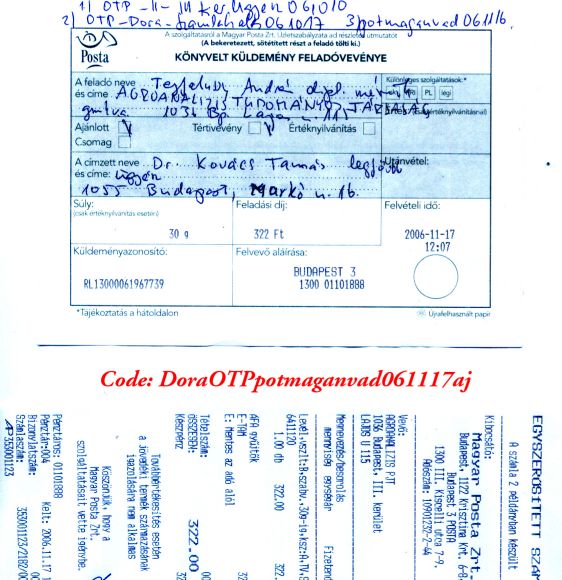 1) OTP - II- 
2) OTP-Dora- 061017 3 potmaganvad 06 11 16
A szolgáltatásról a Magyar Posta Zrt. Üzletszabályzata ad részletes útmutatót
(A bekeretezett, sötétített részt a feladó tölti ki.)
Posta
KÖNYVELT KÜLDEMÉNY FELADÓVEVÉNYE
A feladó neve és címe:
AGROANALIZIS TUDOMÁNYOS TÁRSASÁG
1036 Bp. Lajos u. 115
Különleges szolgáltatások:*
PL légi
Ajánlott Tértivevény Értéknyilvánítás
Csomag
A címzett neve és címe:
Dr. Kovács Tamás legfőbb ügyész
1055 Budapest, Markó u. 16.
Utánvétel:
Súly:
(csak értéknyilvánítás esetén)
30 g
Feladási díj:
322 Ft
Felvételi idő:
2006-11-17
12:07
Küldeményazonosító:
RL13000061967739
Felvevő aláírása:
BUDAPEST 3
1300 01101888
*Tájékoztatás a hátoldalon
Újrafelhasznált papír
Code: DoraOTPpotmaganvad061117aj
EGYSZERŰSÍTETT SZÁ
A számla 2 példányban készült
Kibocsátó:
Magyar Posta Zrt.
Budapest, 1122 Krisztina krt. 6-8.
Budapest 3 POSTA
1300 III. Kiscelli utca 7-9.
Adószám: 10901232-2-44
Vevő:
AGROANALIZIS PJT
1036 Budapest, III. kerület
LAJOS U 115
Megnevezés/besorolás
mennyiség egységár Fizetend
Levél,veszít:B.szabv. 30g-ig+ksz:A,TV,S
6411120
1.00 db 322.00 322.
ÁFA gyűjtők
E-TAM
E: Mentes az adó alól
Tételszám:
ÖSSZESEN: 322.00
Készpénz
Továbbértékesítés esetén
a jövedéki termék származásának
igazolására nem alkalmas
Köszönjük, hogy a
Magyar Posta Zrt.
szolgáltatásait vette igénybe.
Pénztáros: 01101888
Pénztár:004 Kelt: 2006.11.17 1
Bizonylatszám:
353001123/2182/00
Számlaszám:
AP 353001123